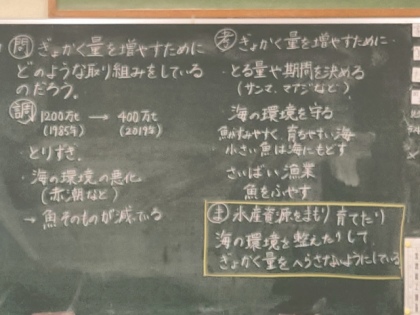 問 ぎょかく量を増やすために
どのような取り組みをしている
のだろう。
調 1200万t → 400万t
(1985年) (2019年)
とりすぎ.
・海の環境の悪化
(赤潮など)
→ 魚そのものが減っている
考 ぎょかく量を増やすために
・とる量や期間を決める
(サンマ、マアジなど)
海の環境を守る
魚がすみやすく、育ちやすい海
小さい魚は海にもどす
さいばい漁業
魚をふやす
ま 水産資源をまもり育てたり
海の環境を整えたりして
ぎょかく量をへらさないようにしている